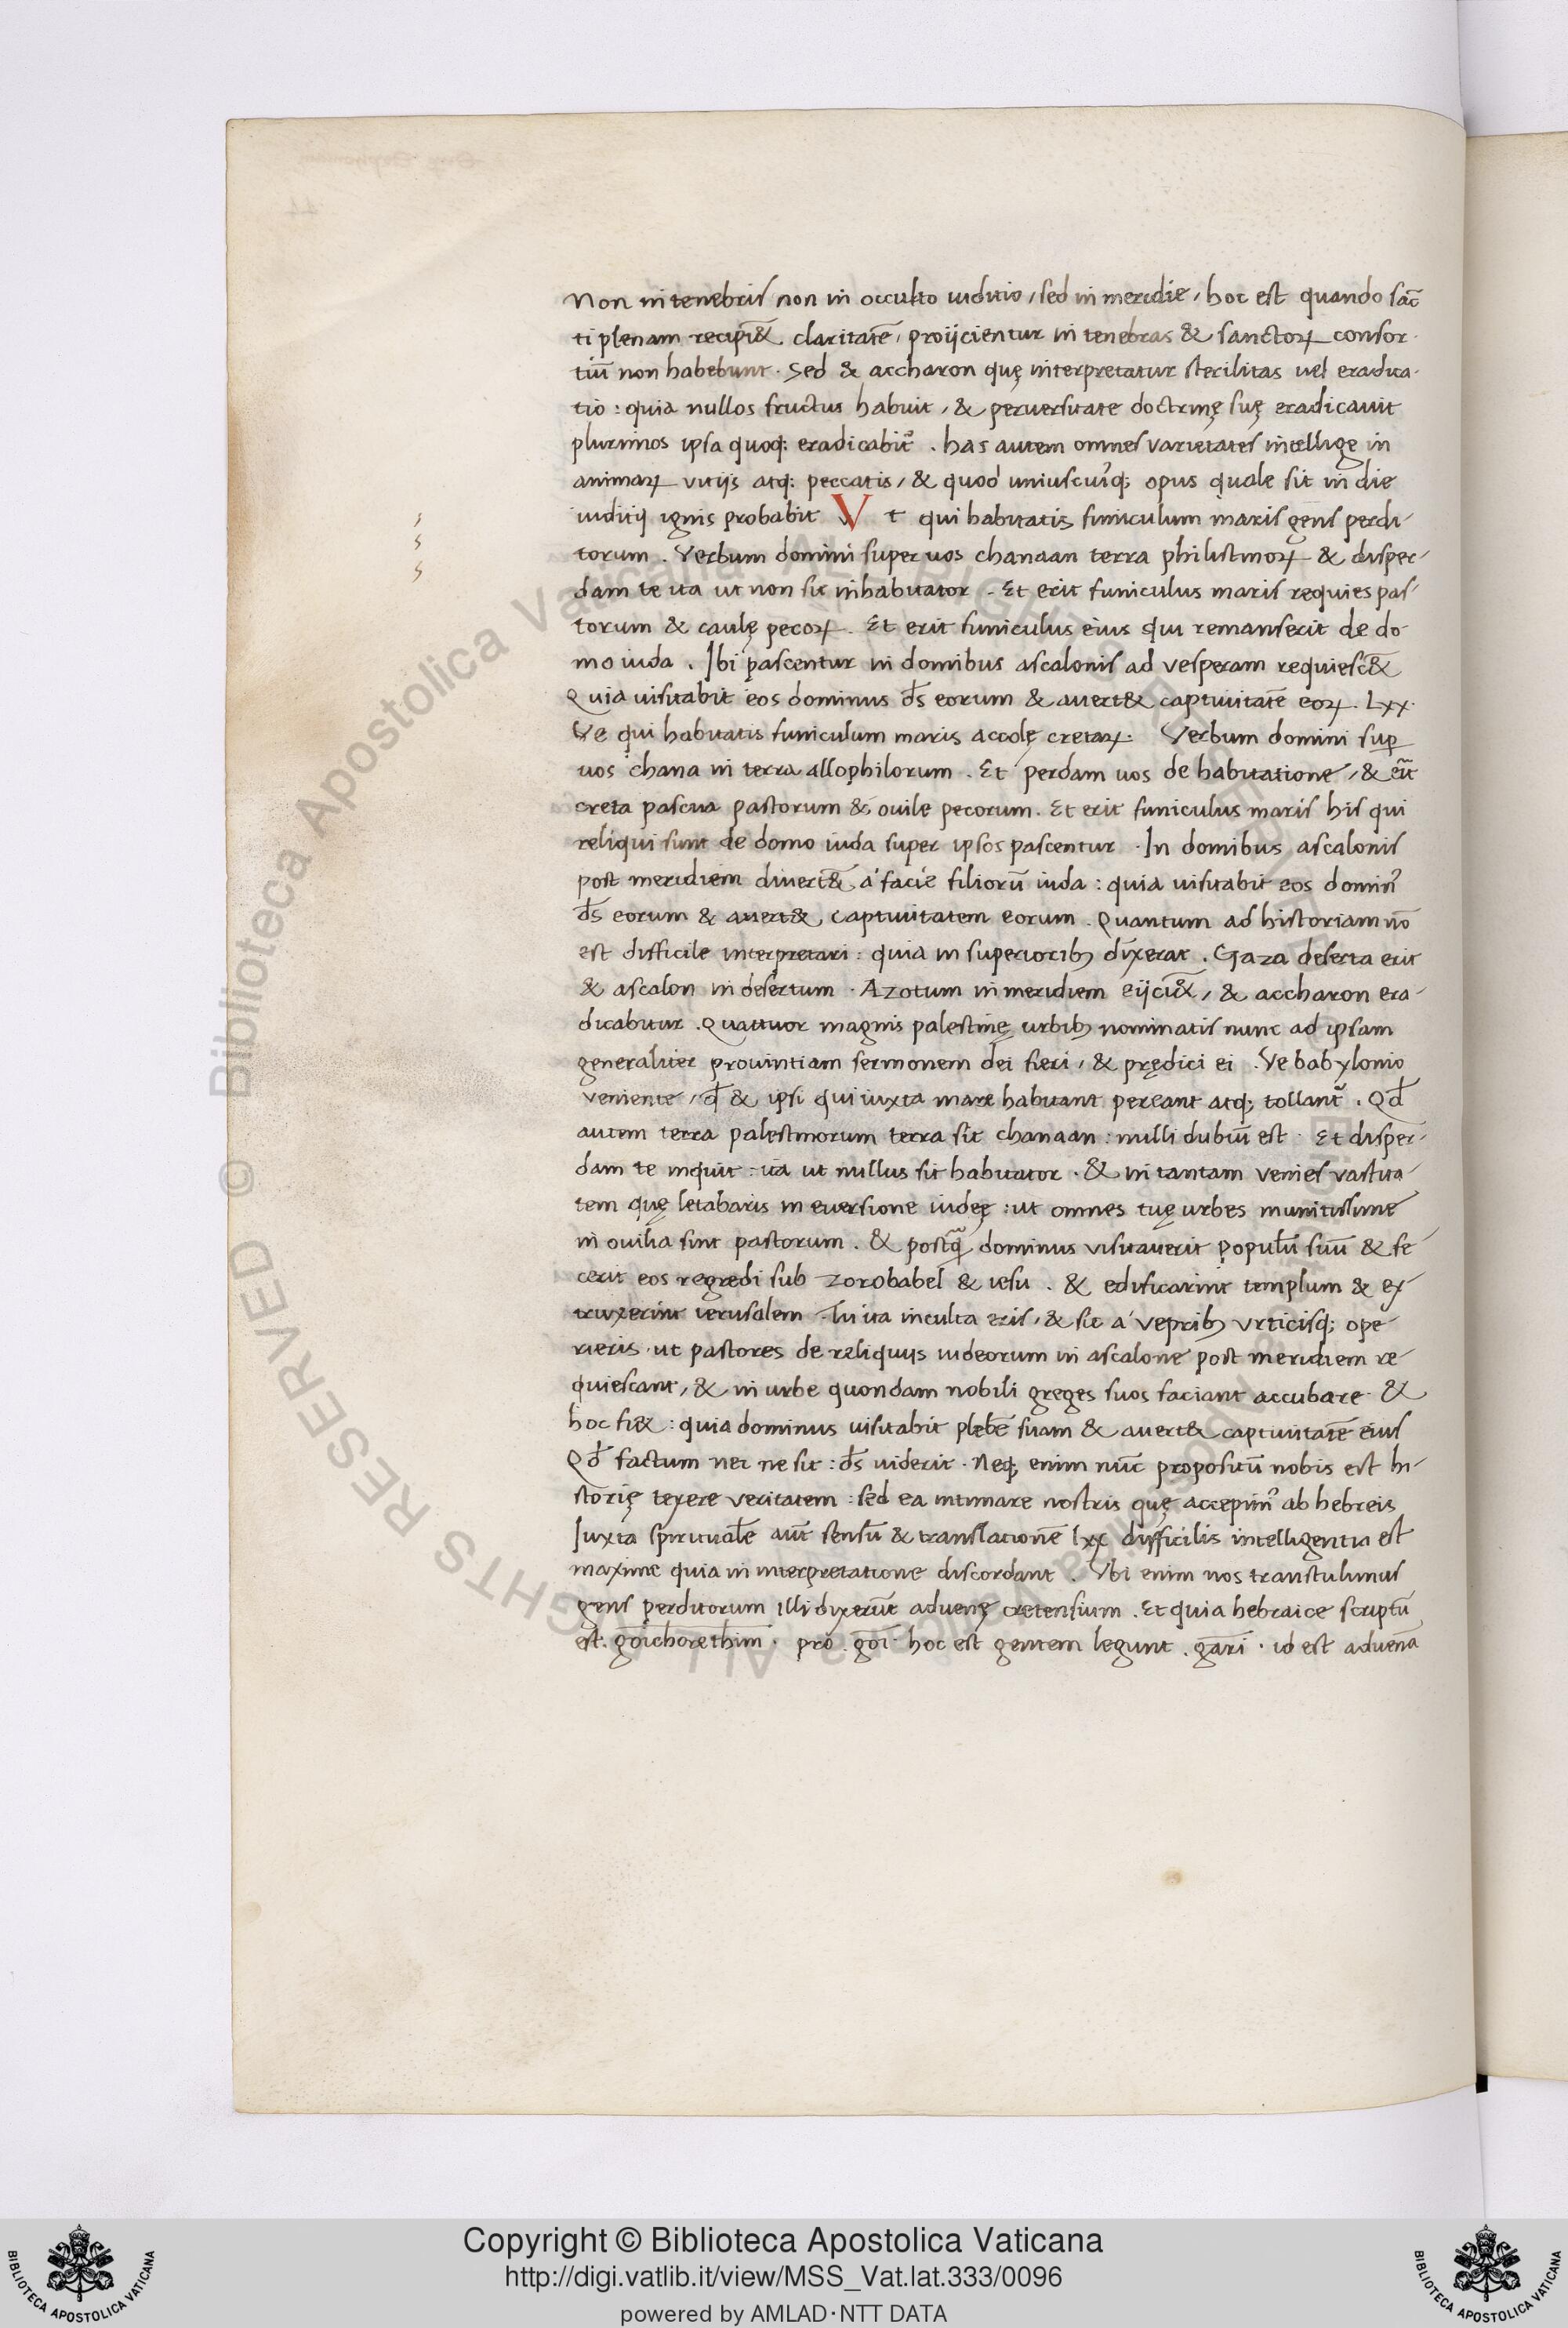 Non in tenebris non in occulto iuditio, sed in meridie, hoc est quando sāc
ti plenam recipi&̄ claritatē, proijcientur in tenebras & sanctoꝝ consor-
tiū non habebunt. Sed & accharon quę interpretatur sterilitas uel eradica-
tio: quia nullos fructus habuit, & peruersitate doctrinę suę eradicauit
plurimos ipsa quoq; eradicabit᷑. has autem omnes varietates intellige in
animaꝝ vitijs atq; peccatis, & quod uniuscuiꝰq; opus quale sit in die
iuditij ignis probabit V t qui habitatis funiculum maris gens perdi-
torum. Verbum domini super uos chanaan terra philistinoꝝ & disper-
dam te ita ut non sit inhabitator. Et erit funiculus maris requies pas-
torum & caulę pecoꝝ. Et erit funiculus eius qui remanserit de do-
mo iuda. Ibi pascentur in domibus ascalonis ad vesperam requiesc&̄
Quia uisitabit eos dominus d̄s eorum & auert& captiuitatē eoꝝ. Lxx.
Ve qui habitatis funiculum maris accolę cretaꝝ. Verbum domini suꝑ
uos chana in terra allophilorum. Et perdam uos de habitatione, & er̄it
creta pascua pastorum & ouile pecorum. Et erit funiculus maris his qui
reliqui sunt de domo iuda super ipsos pascentur. In domibus ascalonis
post meridiem diuert&̄ a facie filiorū iuda: quia uisitabit eos dominꝰ
d̄s eorum & auert& captiuitatem eorum. Quantum ad historiam nō
est difficile interpretari: quia in superioribꝫ dixerat. Gaza deserta erit
& ascalon in desertum. Azotum in meridiem eijci&̄, & accharon era-
dicabitur. Quattuor magnis palestinę urbibꝫ nominatis nunc ad ipsam
generaliter prouintiam sermonem dei fieri, & prędici ei. Ve babylonio
veniente, qđ & ipsi qui iuxta mare habitant pereant atq; tollant᷑. Qđ
autem terra palestinorum terra sit chanaan: nulli dubiū est. Et disper-
dam te inquit: ita ut nullus sit habitator. & in tantam venies vastita-
tem quę letabaris in euersione iudeę: ut omnes tuę urbes munitissime
in ouilia sint pastorum. & postq̄ dominus visitauerit populū suū & fe-
cerit eos regredi sub zorobabel & iesu. & edificarint templum & ex-
truxerint ierusalem. Tu ita inculta eris, & sic a vepribꝫ vrticisq; ope-
rieris. ut pastores de reliquijs iudeorum in ascalone post meridiem re-
quiescant, & in urbe quondam nobili greges suos faciant accubare. &
hoc fi&: quia dominus uisitabit plebē suam & auert& captiuitatē eius
Qđ factum nec ne sit: d̄s uiderit. Neq; enim nūc propositū nobis est hi-
storię texere veritatem: sed ea intimare nostris quę accepimꝰ ab hebreis
Iuxta spiritualē aūt sensū & translationē lxx difficilis intelligentia est
maxime quia in interpretatione discordant. Vbi enim nos transtulimus
gens perditorum illi dixerūt aduenę cretensium. Et quia hebraice scriptū
est. gōichorethim̄. pro. gōi. hoc est gentem legunt. gāri. id est aduenā
Copyright © Biblioteca Apostolica Vaticana
http://digi.vatlib.it/view/MSS_Vat.lat.333/0096
powered by AMLAD·NTT DATA
BIBLIOTECA APOSTOLICA VATICANA
BIBLIOTECA APOSTOLICA VATICANA